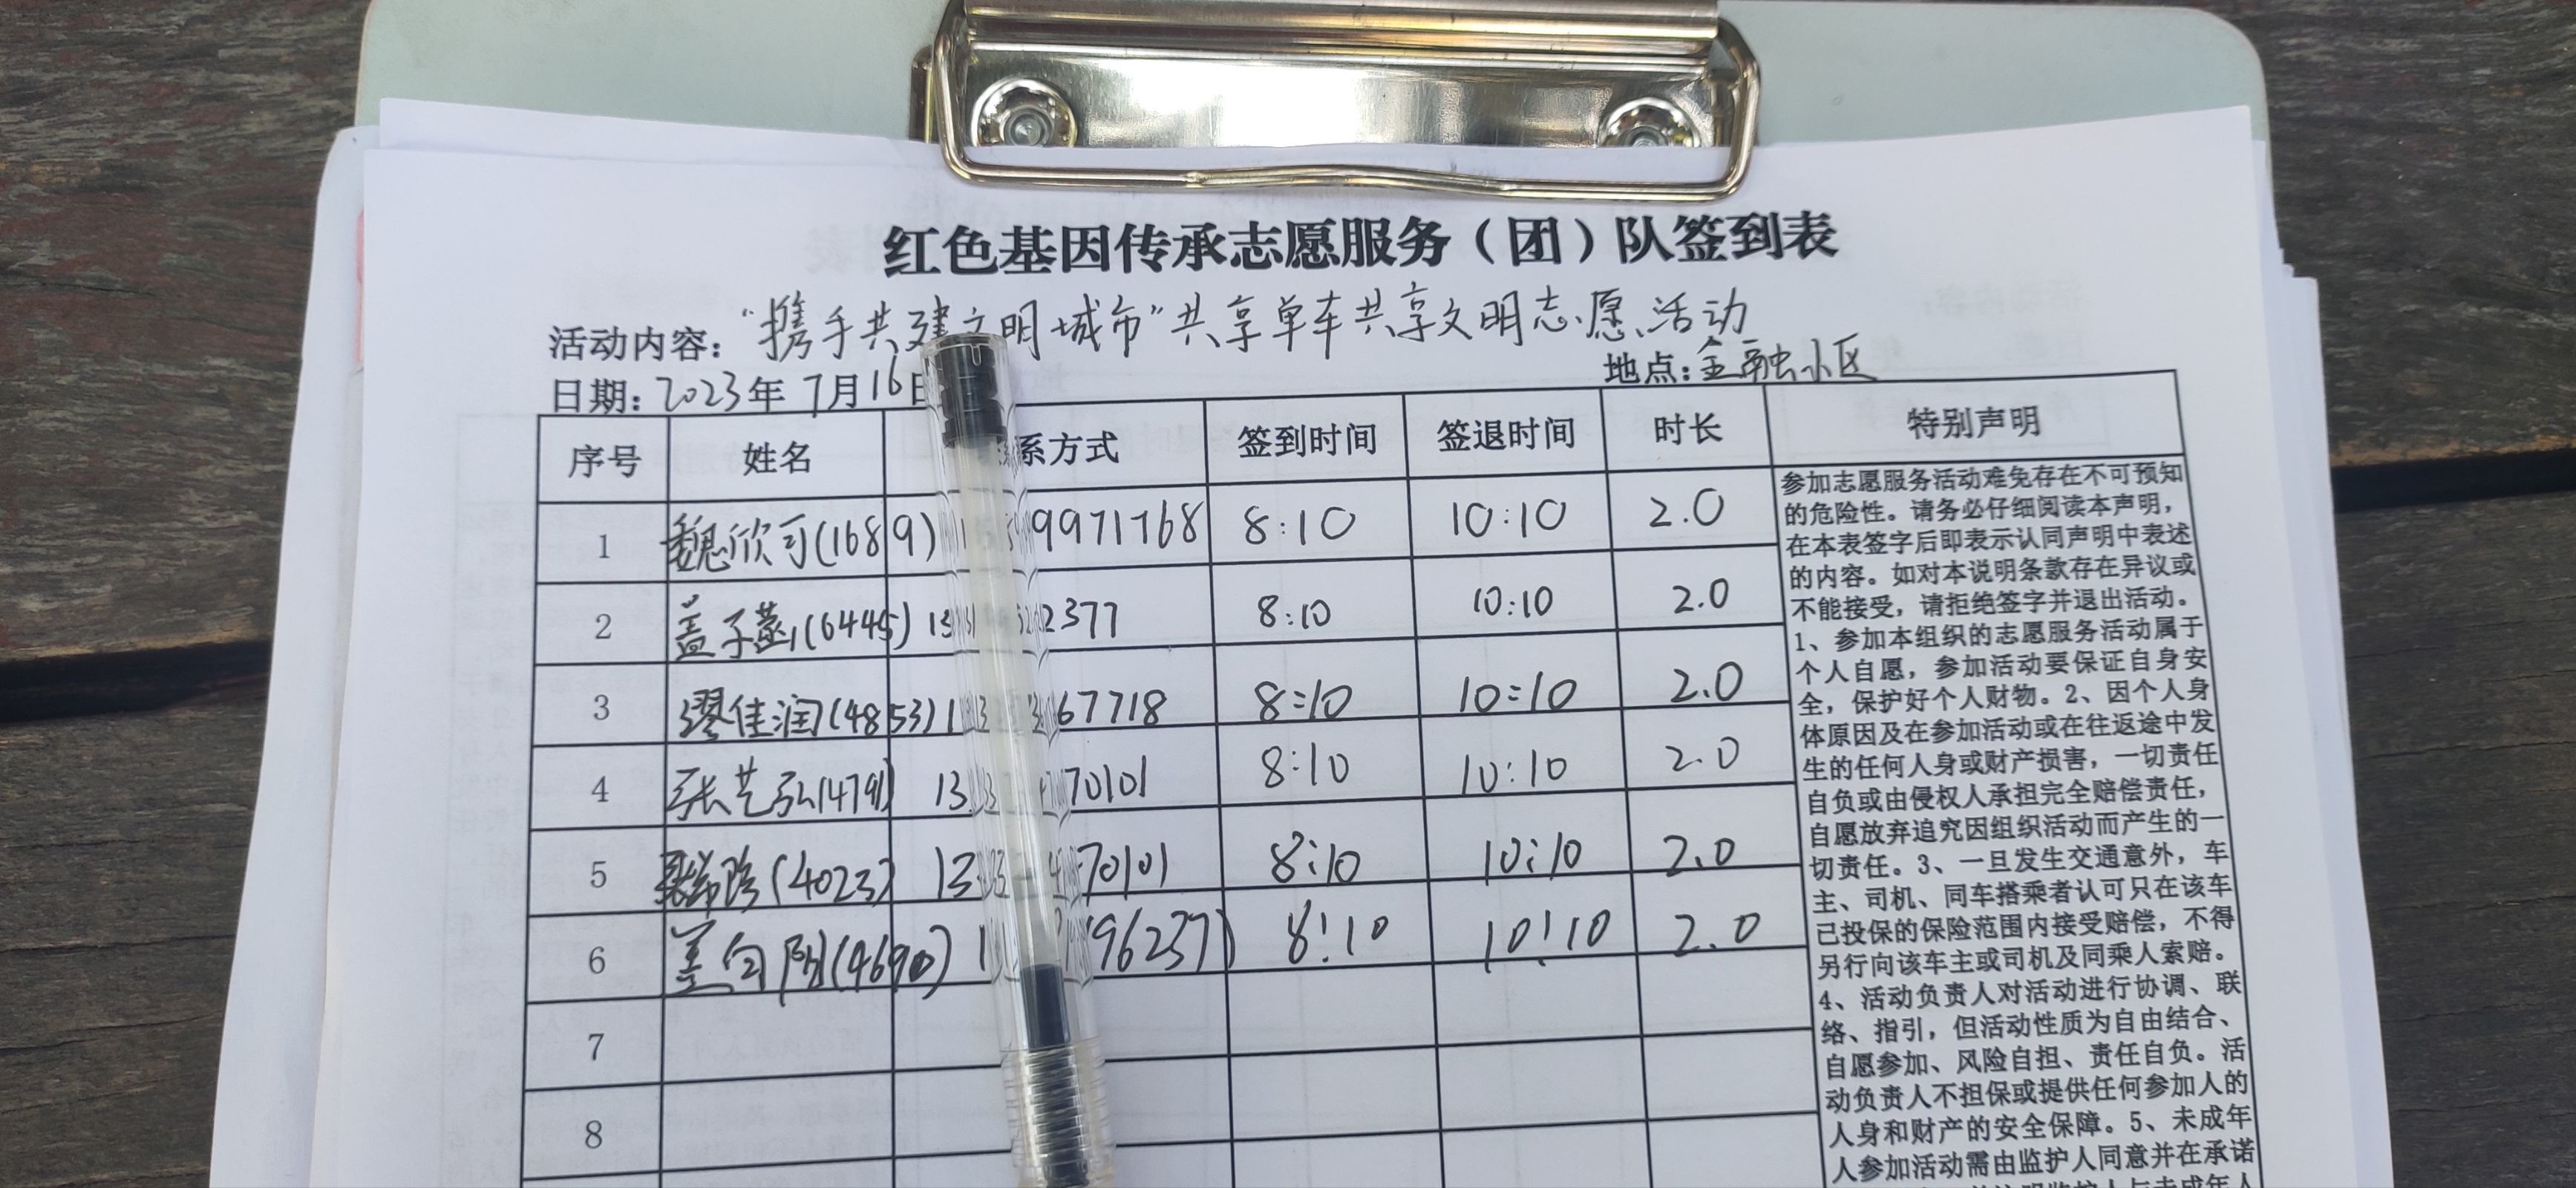 红色基因传承志愿服务（团）队签到表
活动内容：“携手共建文明城市”共享单车共享文明志愿活动
日期：2023年7月16日 地点：金融小区
序号 姓名 系方式 签到时间 签退时间 时长 特别声明
1 魏欣可(1689) 9971768 8:10 10:10 2.0
2 盖子菡(6445) 13 2377 8:10 10:10 2.0
3 缪佳润(4853) 1 67718 8:10 10:10 2.0
4 张艺弘(4791) 13 70101 8:10 10:10 2.0
5 (4023) 13 70101 8:10 10:10 2.0
6 (4690) 1 96237 8:10 10:10 2.0
7
8
参加志愿服务活动难免存在不可预知
的危险性。请务必仔细阅读本声明，
在本表签字后即表示认同声明中表述
的内容。如对本说明条款存在异议或
不能接受，请拒绝签字并退出活动。
1、参加本组织的志愿服务活动属于
个人自愿，参加活动要保证自身安
全，保护好个人财物。2、因个人身
体原因及在参加活动或在往返途中发
生的任何人身或财产损害，一切责任
自负或由侵权人承担完全赔偿责任，
自愿放弃追究因组织活动而产生的一
切责任。3、一旦发生交通意外，车
主、司机、同车搭乘者认可只在该车
已投保的保险范围内接受赔偿，不得
另行向该车主或司机及同乘人索赔。
4、活动负责人对活动进行协调、联
络、指引，但活动性质为自由结合、
自愿参加、风险自担、责任自负。活
动负责人不担保或提供任何参加人的
人身和财产的安全保障。5、未成年
人参加活动需由监护人同意并在承诺